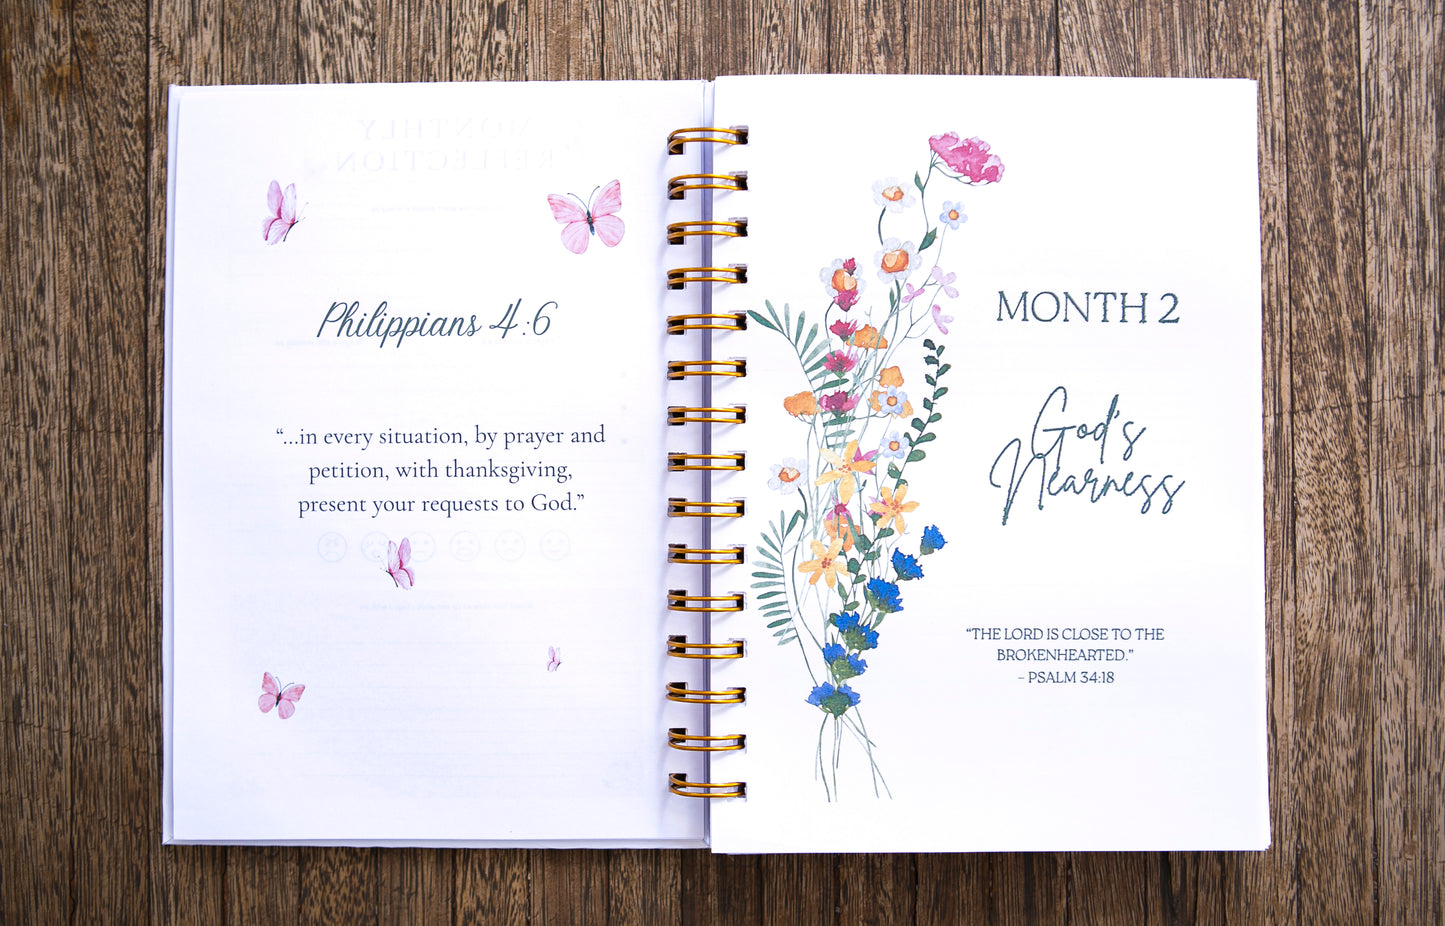 Philippians 4:6
“...in every situation, by prayer and
petition, with thanksgiving,
present your requests to God.”
MONTHLY
REFLECTION
MONTH 2
God's
Nearness
“THE LORD IS CLOSE TO THE
BROKENHEARTED.”
– PSALM 34:18